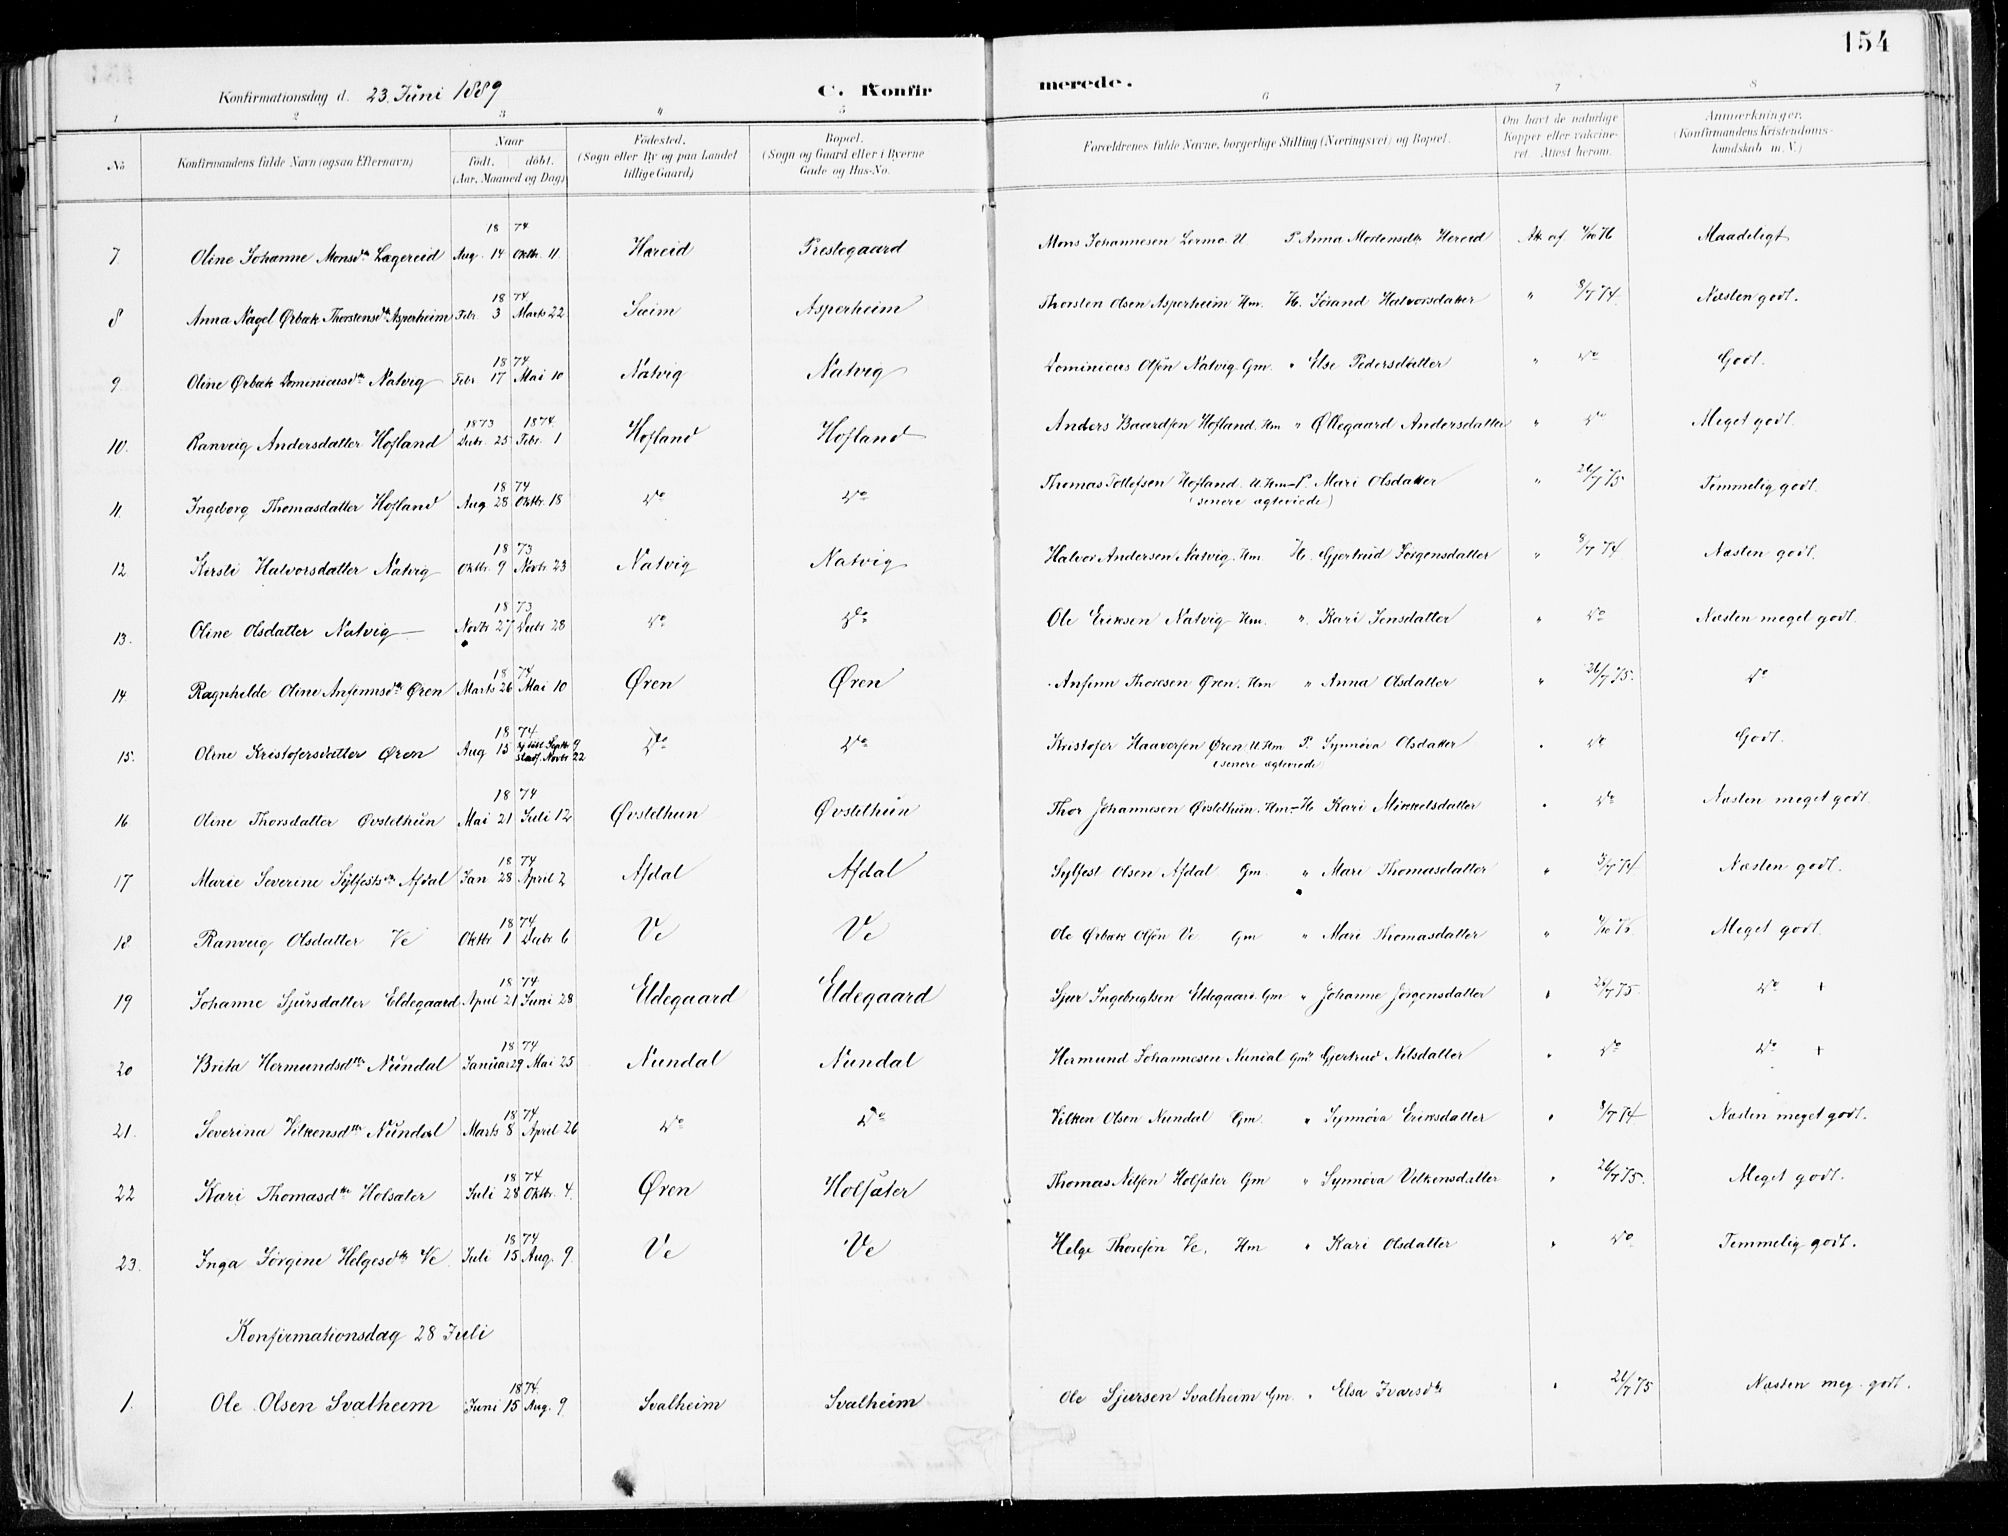 154
Konfirmationsdag d. 23. Juni 1889 C. Konfirmerede.
1 2 3 4 5 6 7 8
No Konfirmandens fulde Navn (ogsaa Efternavn) Naar födt. döbt. (Aar, Maaned og Dag) Födested. (Sogn eller By og paa Landet tillige Gaard) Bopæl. (Sogn og Gaard eller i Byerne Gade og Hus-No. Forældrenes fulde Navne, borgerlige Stilling (Næringsvei) og Bopæl. Om havt de naturlige Kopper eller vakcineret. Attest herom. Anmærkninger. (Konfirmandens Kristendomskundskab m. V.)
18 74
7 Oline Johanne Monsdtr Lægereid Aug. 14 Oktbr. 11. Hæreid Prestegaard Mons Johannesen Lermo. U. P. Anna Mortensdtr Hereid Att. af Maadeligt
18 74
8 Anna Nagel Ørbæk Thorstensdtr Asperheim Febr. 3 Marts 22 Sæim Asperheim Thorsten Olsen Asperheim Hm. H. Sørand Halvorsdatter " 8/7 74. Næsten godt.
18 74
9. Oline Ørbæk Dominicusdtr Natvig Febr. 17 Mai 10 Natvig Natvig Dominicus Olsøn Natvig Gm. " Else Pedersdatter " do Godt.
1873 1874.
10. Ranveig Andersdatter Hofland Decbr. 25 Febr. 1 Hofland Hofland Anders Baardsen Hofland. Hm " Øllegaard Andersdatter " do Meget godt.
18 74
11. Ingeborg Thomasdatter Hofland Aug 28 Oktbr. 18 do do Thomas Tollefsen Hofland. U. Hm - P. Mari Olsdatter (senere ægteviede) " 26/7 75 Temmelig godt.
18 73
12 Kersti Halvorsdatter Natvig Oktbr. 9 Novbr 23 Natvig Natvig Halvor Andersen Natvig. Hm H. Gjertrud Jørgensdatter " 8/7 74 Næsten godt.
18 73
13. Oline Olsdatter Natvig Novbr 27 Decbr 28 do do Ole Eriksen Natvig Hm. " Kari Jensdatter " do Næsten meget godt.
18 74
14 Ragnhilde Oline Anfinnsdtr Øren Marts 26 Mai 10 Øren Øren Anfinn Thoresen Øren. Hm " Anna Olsdatter " 26/7 75. do
18 74
15. Oline Kristofersdatter Øren Aug 15 Septbr 9 stadf. Novbr 22 do do Kristofer Haaversen Øren U. Hm P. Synnøva Olsdatter (senere ægteviede) " do Godt.
18 74
16 Oline Thorsdatter Øvstethun Mai 21 Juli 12 Øvstethun Øvstethun Thor Johannesen Øvstethun. Hm - H. Kari Mikkelsdatter " do Næsten meget godt
18 74
17 Marie Severine Sylfestsdtr Afdal Jan 28 April 2 Afdal Afdal Sylfest Olsen Afdal Gm. " Mari Thomasdatter " Næsten godt.
18 74
18 Ranveig Olsdatter Ve Oktbr 1 Decbr 6 Ve Ve Ole Ørbæk Olsøn Ve Gm " Mari Thomasdatter " Meget godt.
18 74.
19 Johanne Sjursdatter Eldegaard April 21 Juni 28 Eldegaard Eldegaard Sjur Ingebrigtsen Eldegaard. Gm " Johanne Jørgensdatter " 26/7 75. do +
18 74
20 Brita Hermundsdtr Nundal Januar 29 Mai 25 Nundal Nundal Hermund Johannesen Nundal Gm " Gjertrud Nilsdatter " do do +
18 74
21. Severina Vilkensdtr Nundal Marts 8 April 26 do do Vilken Olsen Nundal Gm. " Synnøva Eriksdatter " 8/7 74 Næsten meget godt.
18 74
22 Kari Thomasdtr Holsæter Juli 28 Oktbr. 4. Øren Holsæter Thomas Nilsen Holsæter Gm " Synnøva Vilkensdatter " 26/7 75. Meget godt.
18 74
23. Inga Jørgine Helgesdtr Ve Juli 15 Aug. 9 Ve Ve Helge Thoresøn Ve. Hm " Kari Olsdatter " do Temmelig godt.
Konfirmationsdag 28 Juli
18 74.
1. Ole Olsen Svalheim Juni 15 Aug. 9 Svalheim Svalheim Ole Sjursen Svalheim Gm. " Elsa Ivarsdtr " 26/7 75 Næsten meg. godt.